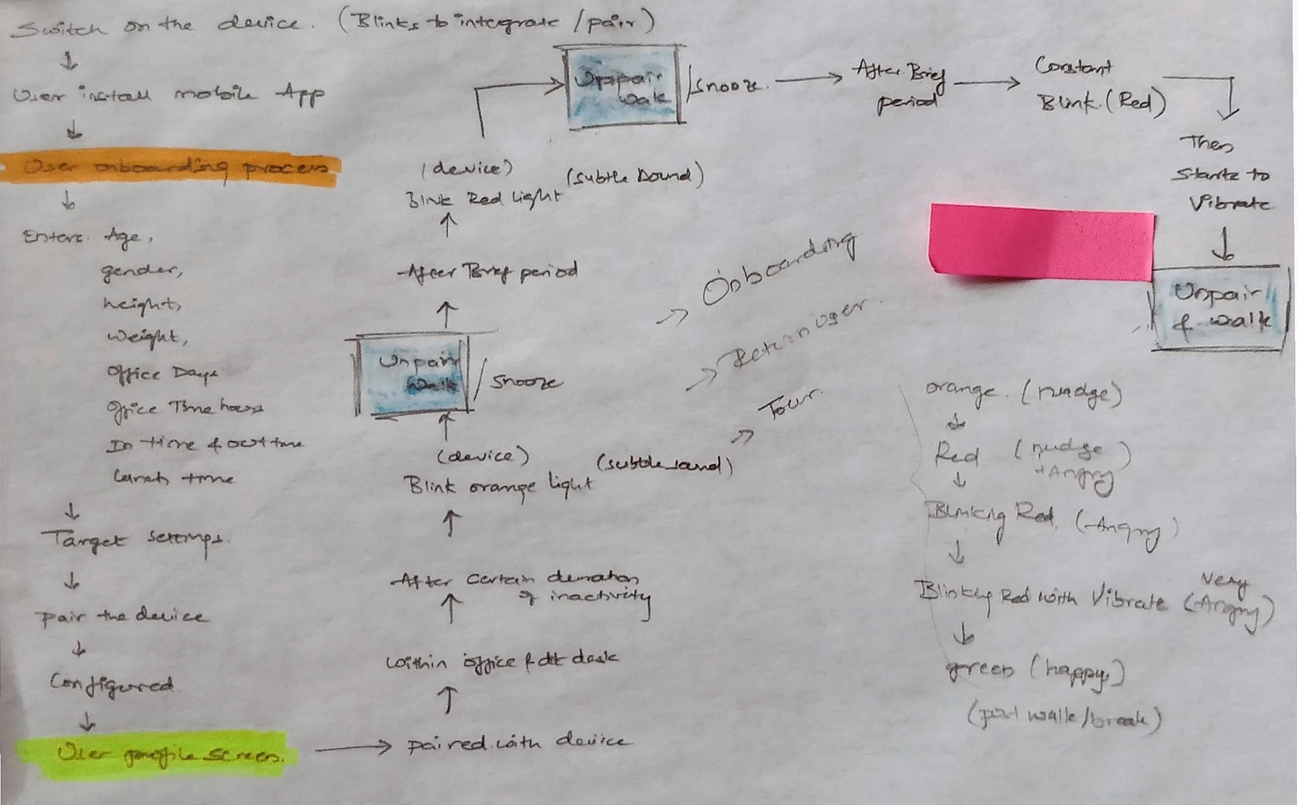 Switch on the device. (Blinks to integrate / pair)
User install mobile App
User onboarding process
Enters. Age,
gender,
height,
weight,
Office Days
Office Time hours
In time & out time
Lunch time
Target settings.
pair the device
Configured
User profile screen.
paired with device
within office & at desk
After certain duration
of inactivity
(device)
Blink orange light
(subtle sound)
Unpair
walk
/ Snooze
After Brief period
(device)
Blink Red light
(subtle sound)
Unpair
walk
/ Snooze.
After Brief
period
Constant
Blink. (Red)
Then
starts to
Vibrate
Unpair
& walk
Onboarding
Return user.
Tour
orange. (nudge)
Red (nudge
+ Angry)
Blinking Red. (Angry)
Blinking Red with Vibrate (very
Angry)
green (happy)
(post walk/break)